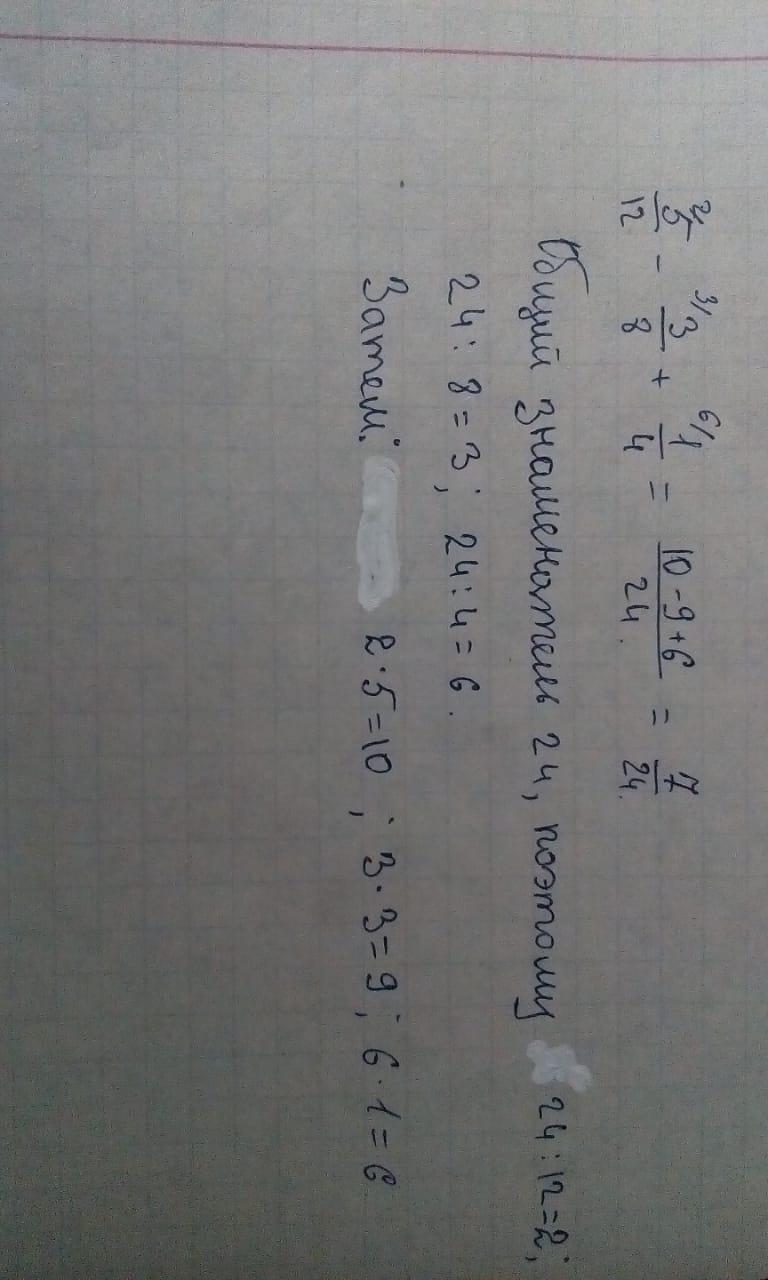 2/5/12 - 3/3/8 + 6/1/4 = 10-9+6/24. = 7/24.
Общий знаменатель 24, поэтому 24:12=2;
24:8=3; 24:4=6.
Затем: 2·5=10; 3·3=9; 6·1=6